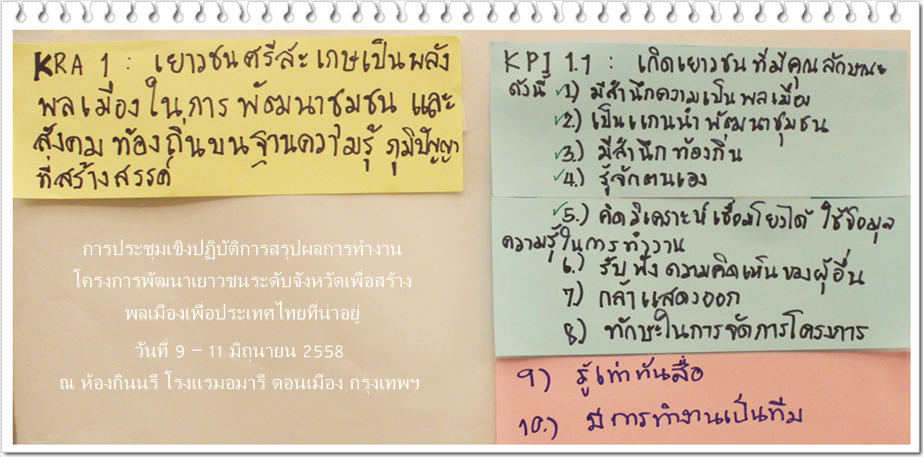 KRA 1 : เยาวชนศรีสะเกษเป็นพลัง
พลเมืองในการ พัฒนาชุมชน และ
สังคม ท้องถิ่นบนฐานความรู้ ภูมิปัญญา
ที่สร้างสรรค์
KPI 1.1 : เกิดเยาวชน ที่มีคุณลักษณะ
ดังนี้ ✓1) มีสำนึกความเป็นพลเมือง
✓2.) เป็นแกนนำ พัฒนาชุมชน
✓3.) มีสำนึก ท้องถิ่น
✓4.) รู้จักตนเอง
✓5.) คิด วิเคราะห์ เชื่อมโยงได้ ใช้ข้อมูล
ความรู้ในการ ทำงาน
6.) รับ ฟัง ความคิดเห็น ของผู้อื่น
7) กล้าแสดงออก
8) ทักษะในการจัดการโครงการ
9) รู้เท่าทันสื่อ
10.) มีการทำงานเป็นทีม
การประชุมเชิงปฏิบัติการสรุปผลการทำงาน
โครงการพัฒนาเยาวชนระดับจังหวัดเพื่อสร้าง
พลเมืองเพื่อประเทศไทยที่น่าอยู่
วันที่ 9 – 11 มิถุนายน 2558
ณ ห้องกินนรี โรงแรมอมารี ดอนเมือง กรุงเทพฯ